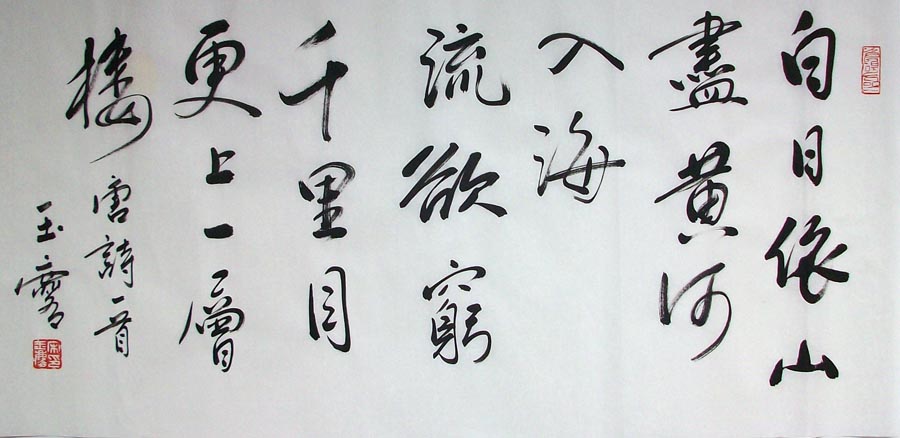 白日依山
盡黄河
入海
流欲窮
千里目
更上一層
樓唐詩一首
玉霽